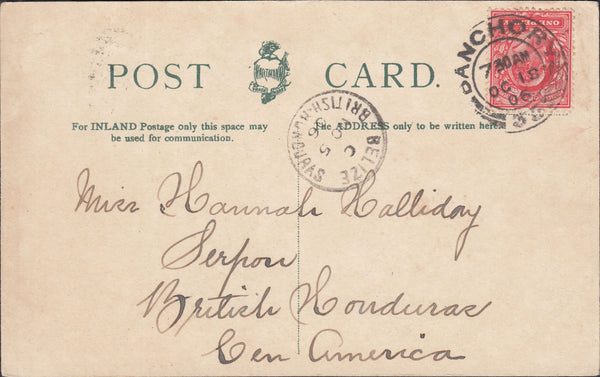 POST CARD.
For INLAND Postage only this space may
be used for communication.
The ADDRESS only to be written here.
BELIZE
BRITISH-HONDURAS
BANCHORY
7 30AM
OC 19
06
ONE PENNY
Miss Hannah Halliday
Serpon
British Honduras
Cen America